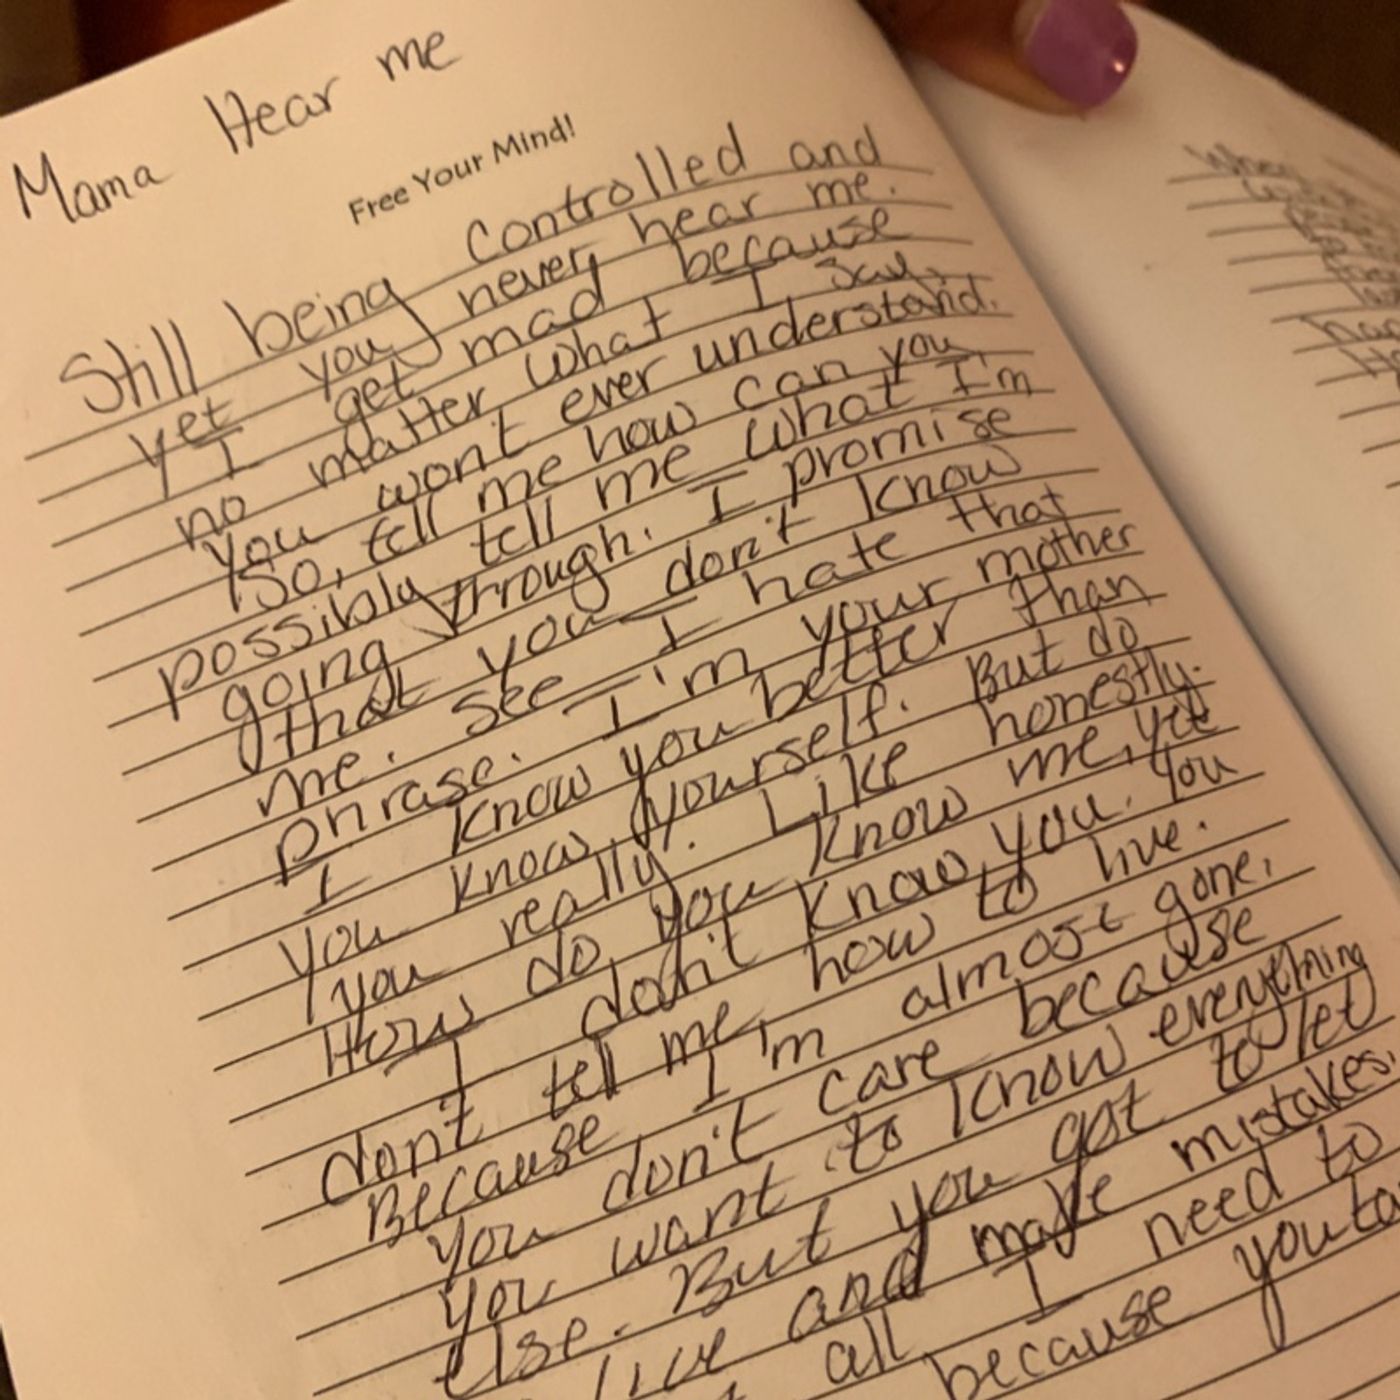 Mama Hear me
Free Your Mind!
Still being controlled and
yet you never hear me.
I get mad because
no matter what I say,
you won't ever understand.
So, tell me how can you
possibly tell me what I'm
going through. I promise
that you don't know
me. See I hate that
phrase. I'm your mother
I know you better than
you know yourself. But do
you really. Like honestly.
How do you know me, yet
I don't know you. You
don't tell me how to live.
Because I'm almost gone.
You don't care because
you want to know everything
else. But you got to let
live and make mistakes.
all I need to
because you